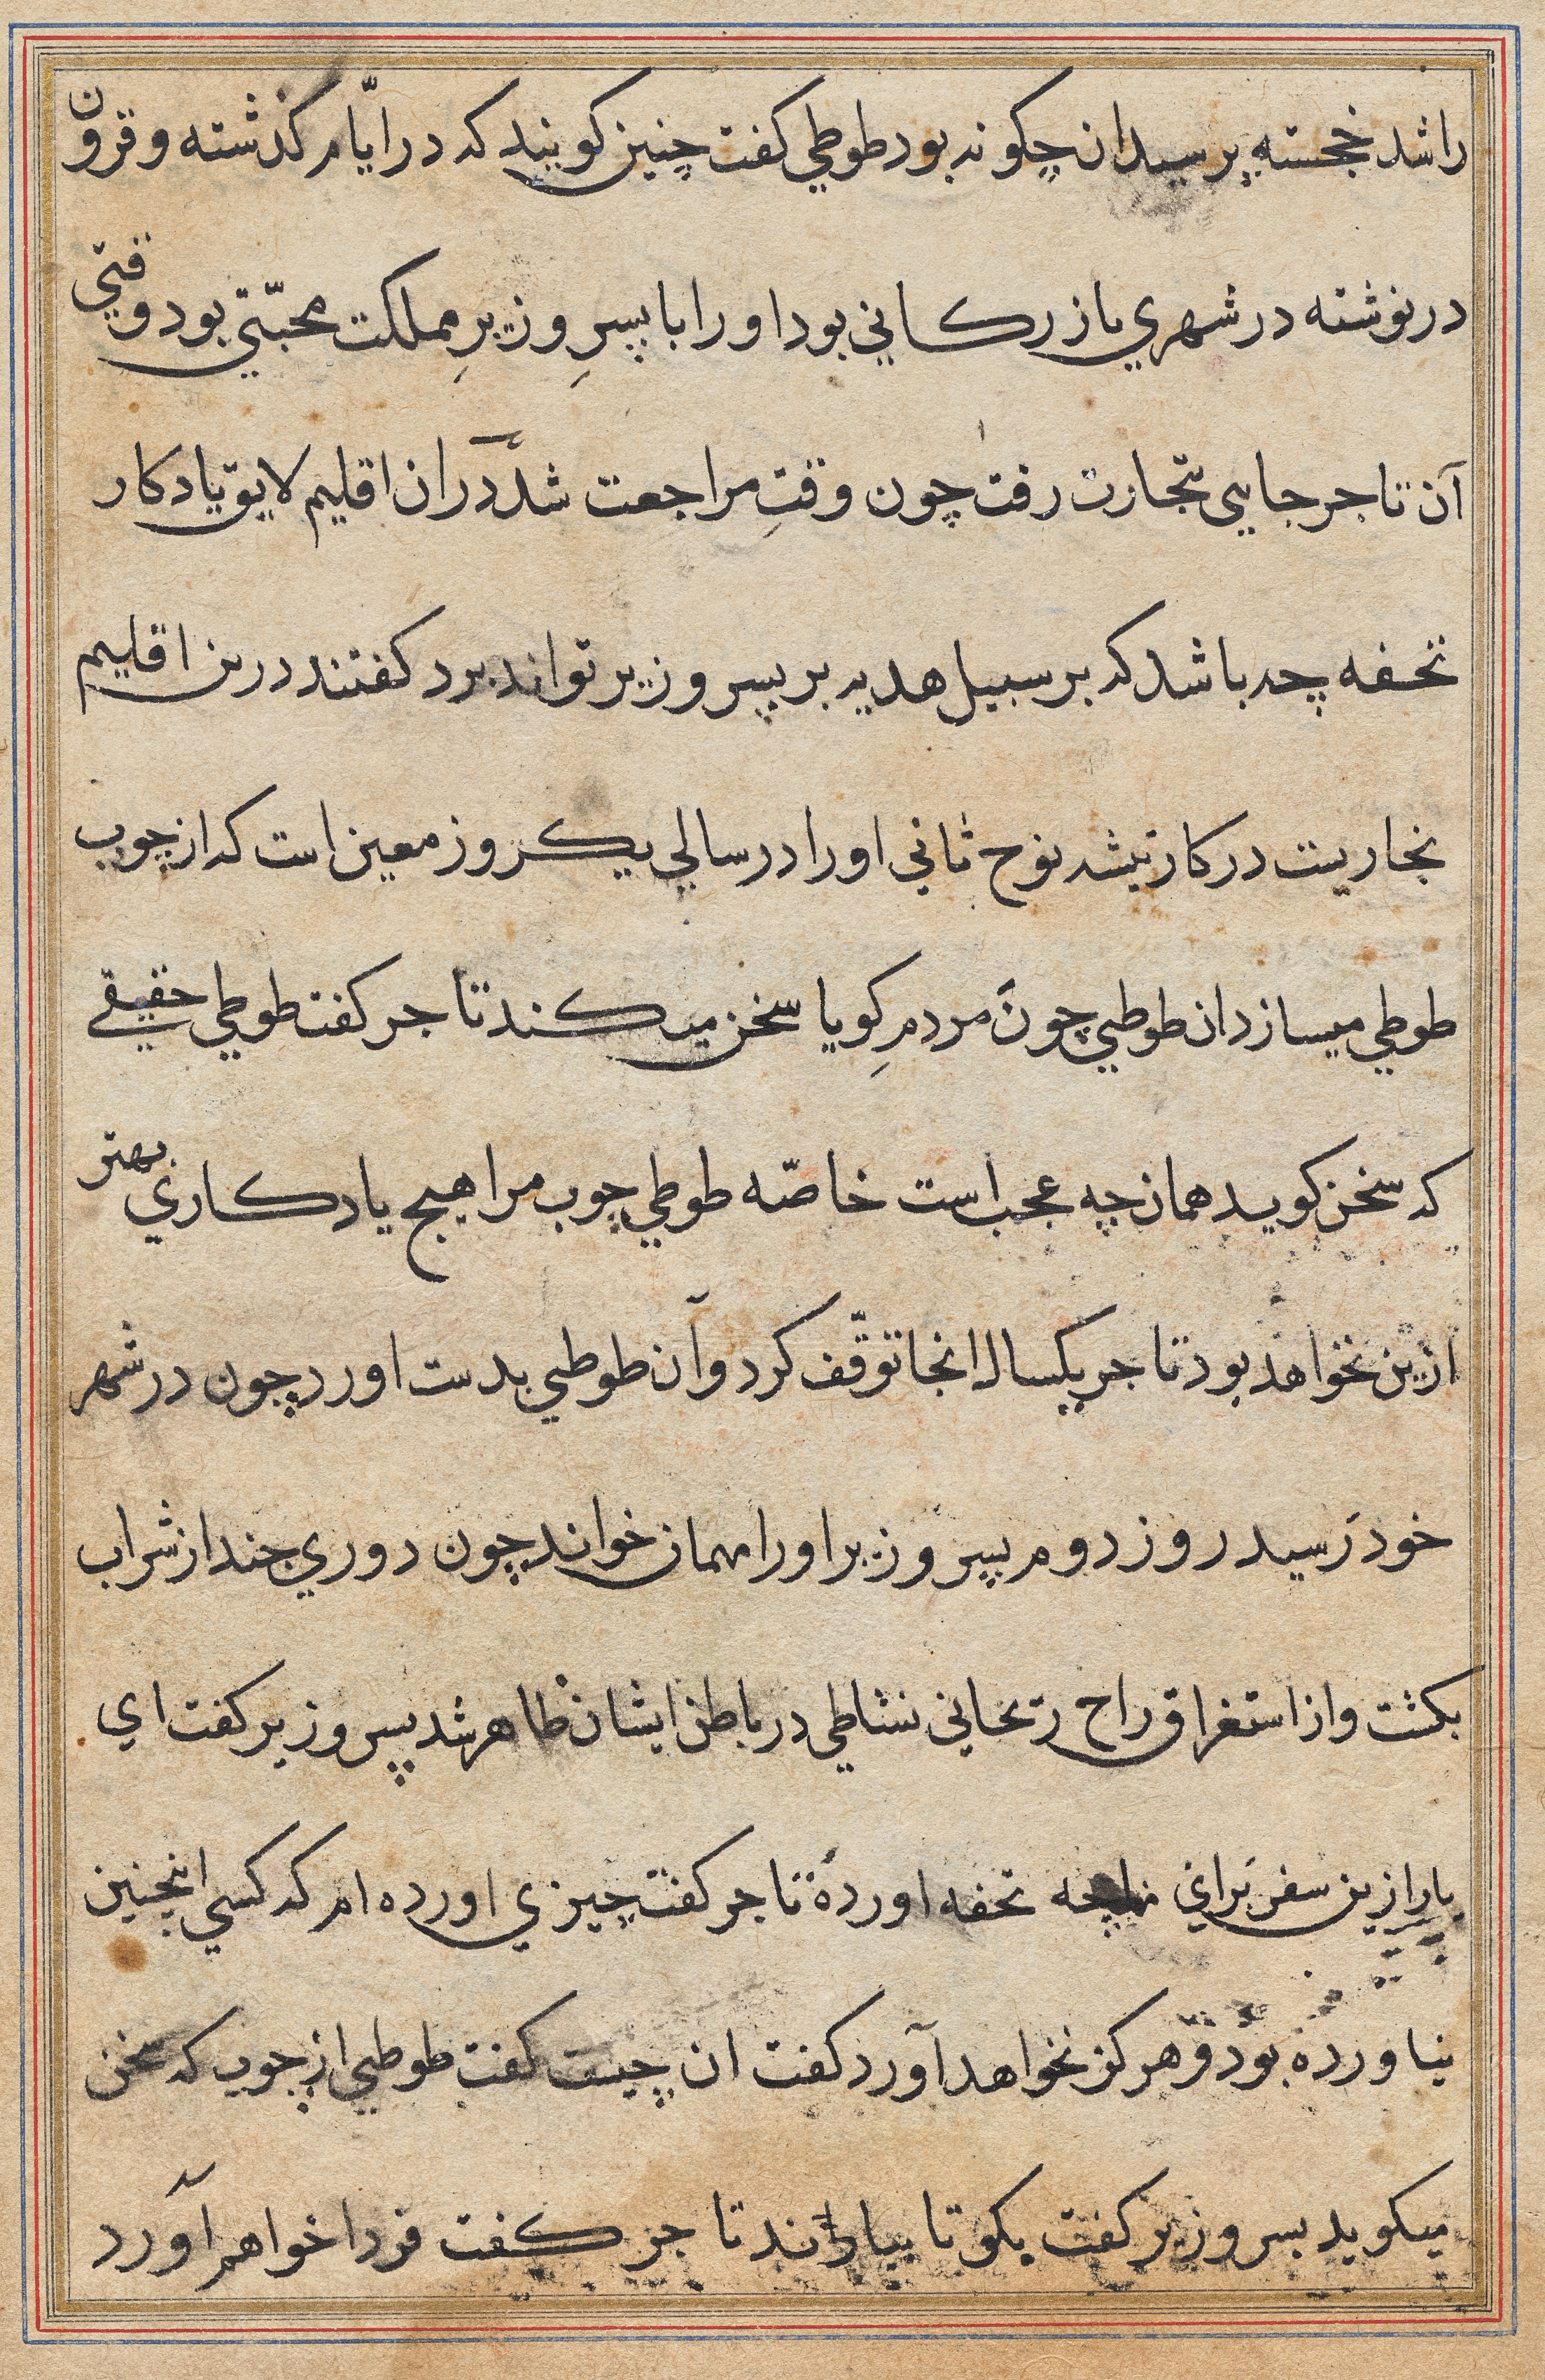 را شد خجسته پرسید ان چکونه بود طوطي کفت چنین کویند که در ایّام کذشته و قرون
در نوشته در شهري بازرکاني بود او را با پسرِ وزیرِ مملکت محبّتي بود وقتي
آن تاجر جایی تجارت رفت چون وقتِ مراجعت شد در ان اقلیم لایق یادکار
تحفه چه باشد که بر سبیل هدیه بر پسر وزیر تواند برد کفتند درین اقلیم
نجاریست در کار تیشه نوح ثاني او را در سالي یکروز معین است که از چوب
طوطي میسازد ان طوطي چون مردمِ کویا سخن میکند تاجر کفت طوطي حقیقے
که سخن کوید همان چه عجب است خاصّه طوطي چوب مرا هیچ یادکاري بهتر
ازین نخواهد بود تاجر یکسال انجا توقّف کرد و آن طوطي بدست اورد چون در شهر
خود رسید روز دوم پسر وزیر او را مهمان خواند چون دوري چند از شراب
بکشت و از استغراق راح ریحاني نشاطي در باطن ایشان ظاهر شد پسر وزیر کفت اي
یار ازین سفر براي ما چه تحفه اوردهٔ تاجر کفت چیزي اورده ام که کسي اینچنین
نیاورده بود و هرکز نخواهد آورد کفت ان چیست کفت طوطي از چوب که سخن
میکوید پسر وزیر کفت بکو تا بیارند تاجر کفت فردا خواهم آورد